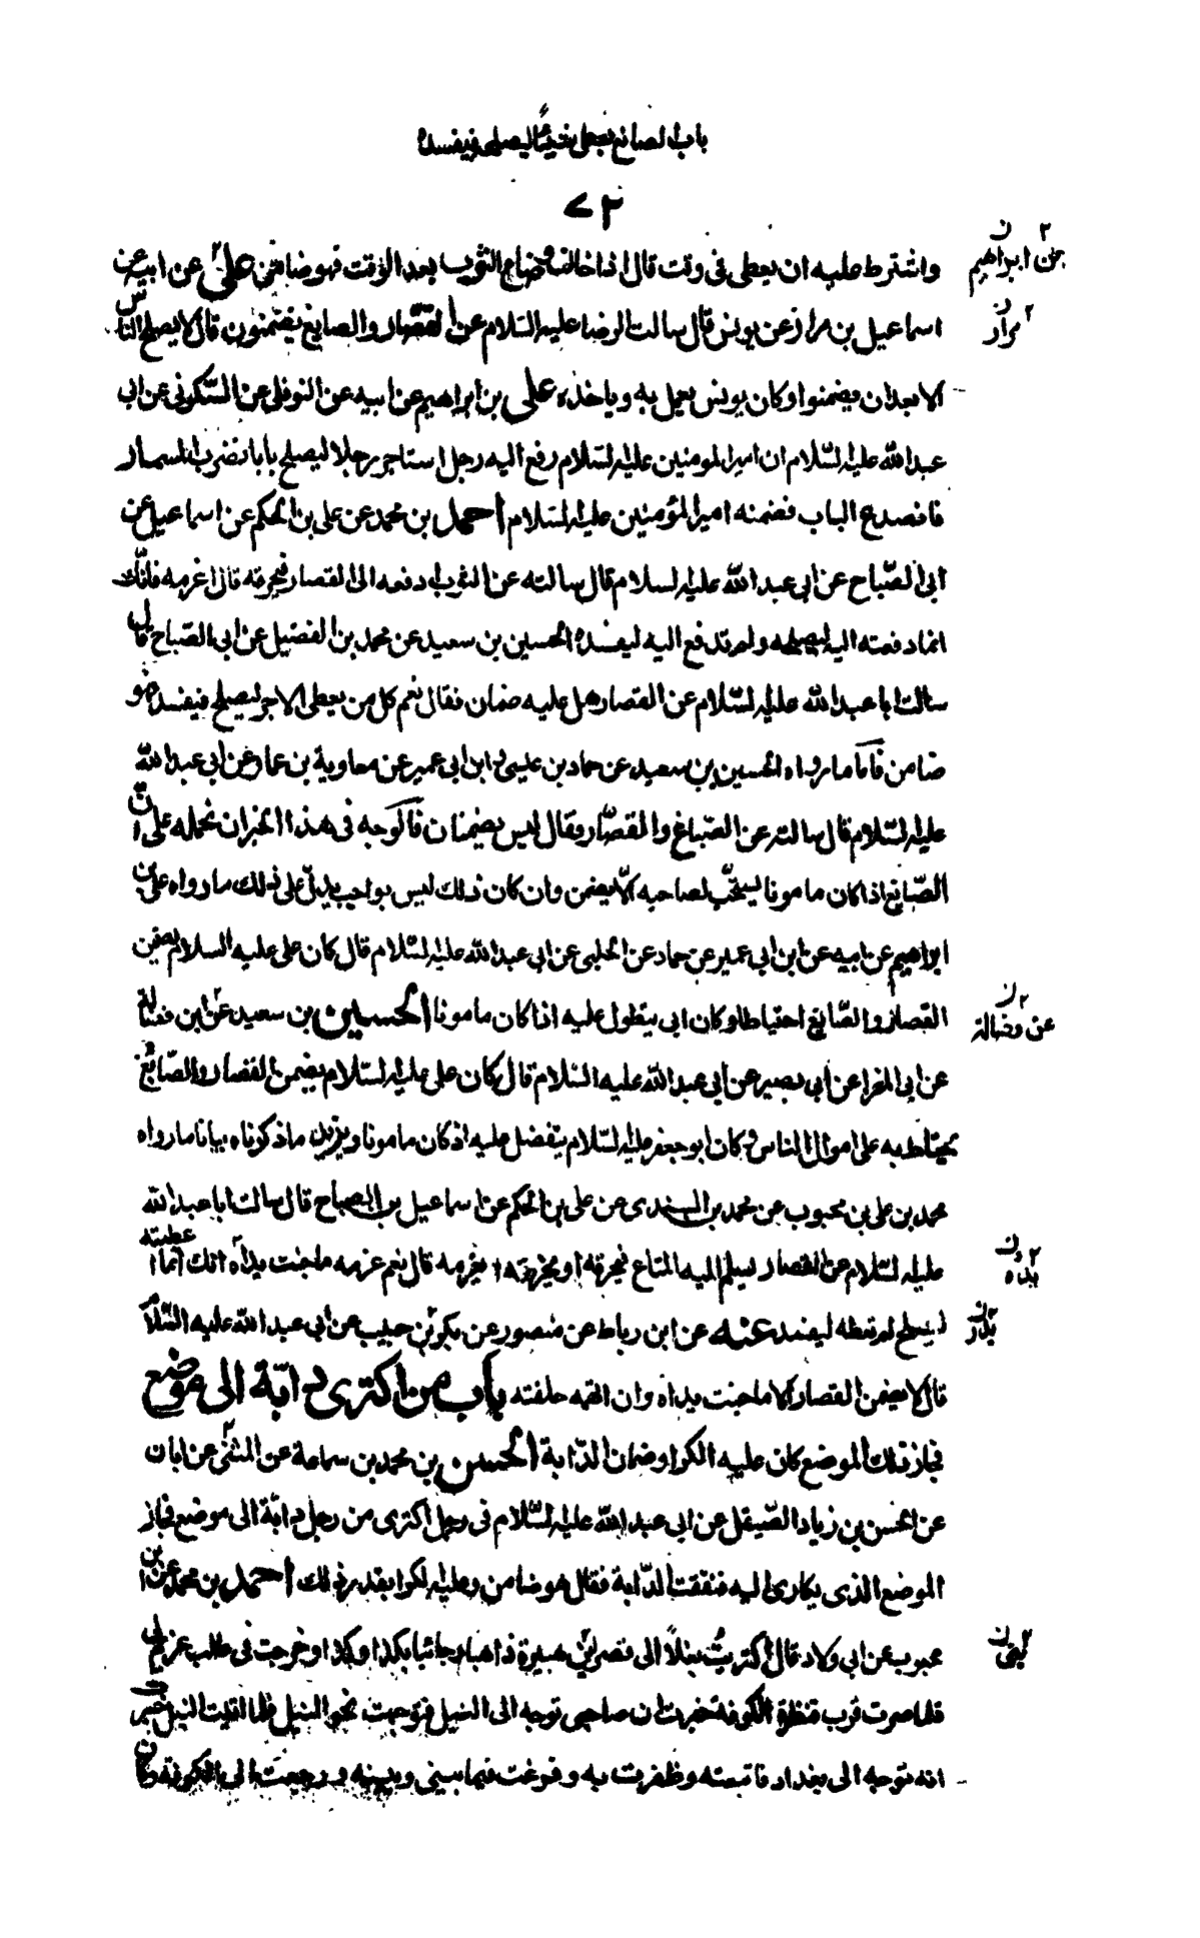 باب الصانع يعطى شيئا ليصلحه فيفسده
٧٢
واشترط عليه ان يعطى فى وقت قال اذا خالف وضاع الثوب بعد الوقت فهو ضامن على عن ابيه عن
بن ابراهيم
اسماعيل بن مرار عن يونس قال سالت الرضا عليه السّلام عن القصّار والصايغ يضمنون قال لا يصلح الناس
مرار
الا بعد ان يضمنوا وكان يونس يعمل به وياخذه على بن ابراهيم عن ابيه عن النوفلى عن السّكونى عن ابى
عبدالله عليه السّلام ان امير المومنين عليه السّلام رفع اليه رجل استاجر رجلا ليصلح بابا فضرب المسمار
فانصدع الباب فضمنه امير المؤمنين عليه السّلام احمد بن محمد عن على بن الحكم عن اسماعيل عن
ابى الصّباح عن ابى عبد الله عليه السلام قال سالته عن الثوب ادفعه الى القصار فيحرقه قال اغرمه فانّك
انما دفعته اليه ليصلحه ولم تدفع اليه ليفسده الحسين بن سعيد عن محمد بن الفضيل عن ابى الصّباح قال
سالت ابا عبد الله عليه السّلام عن القصار هل عليه ضمان فقال نعم كل من يعطى الاجر ليصلح فيفسده فهو
ضامن فاما ما رواه الحسين بن سعيد عن حماد بن عيسى وابن ابى عمير عن معاوية بن عمار عن ابى عبد الله
عليه السّلام قال سالته عن الصّباغ والقصّار فقال ليس يضمنان فالوجه فى هذا الخبران نحمله على ان
الصّانع اذا كان مامونا يستحبّ لصاحبه الّا يضمن وان كان ذلك ليس بواجب يدلّ على ذلك ما رواه على بن
ابراهيم عن ابيه عن ابن ابى عمير عن حماد عن الحلبى عن ابى عبد الله عليه السّلام قال كان على عليه السلام يضمن
القصار والصّايغ احتياطا وكان ابى يتطول عليه اذا كان مامونا الحسين بن سعيد عن ابن فضالة
عن فضالة
عن ابى المغرا عن ابى بصير عن ابى عبد الله عليه السّلام قال كان على عليه السّلام يضمن القصار والصّايغ
يحتاط به على اموال الناس وكان ابو جعفر عليه السّلام يتفضل عليه اذ كان مامونا ويزيد ما ذكرناه بيانا ما رواه
محمد بن على بن محبوب عن محمد بن السندى عن على بن الحكم عن اسماعيل بن الصباح قال سالت ابا عبد الله
عليه السّلام عن القصار يسلم اليه المتاع فيحرقه او يخرقه ايغرمه قال نعم غرمه ما جنت يداه انك انما اعطيته
يده
ليصلح لم تعطه ليفسد عنه عن ابن رباط عن منصور عن بكر بن حبيب عن ابى عبد الله عليه السّلام
قال لا يضمن القصار الا ما جنت يداه وان اتهمه حلفته باب من اكترى دابّة الى موضع
فجاز ذلك الموضع كان عليه الكرا وضمان الدّابة الحسن بن محمد بن سماعة عن المثنى عن ابان
عن الحسن بن زياد الصّيقل عن ابى عبد الله عليه السّلام فى رجل اكترى من رجل دابّة الى موضع فجاز
الموضع الذى يكارى اليه فنفقت الدّابة فقال هو ضامن وعليه الكرا بقدر ذلك احمد بن محمد عن ابن
محبوب عن ابى ولاد قال اكتريت بغلا الى قصر بن هبيرة ذاهبا وجائيا بكذا وكذا وخرجت فى طلب غريم لى
فلما صرت قرب قنطرة الكوفة خبرت ان صاحبى توجه الى النيل فتوجهت نحو النيل فلما اتيت النيل خبرت
انه توجه الى بغداد فاتبعته وظفرت به وفرغت فيما بينى وبينه ورجعت الى الكوفة وكان